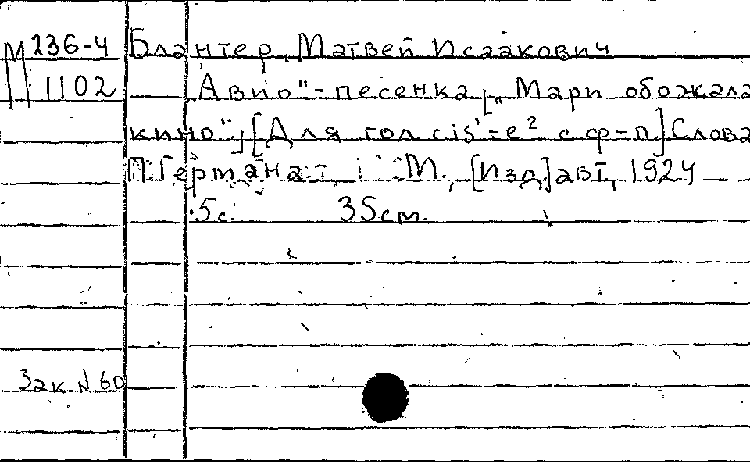 М 236-4
1102
Блантер, Матвей Исаакович
Авио"-песенка [„Мари обожала
кино"] [Для гол cis'-e² с ф-п] Слова
П. Германа. М., [Изд] авт, 1924
5с. 35см.
Зак N 60